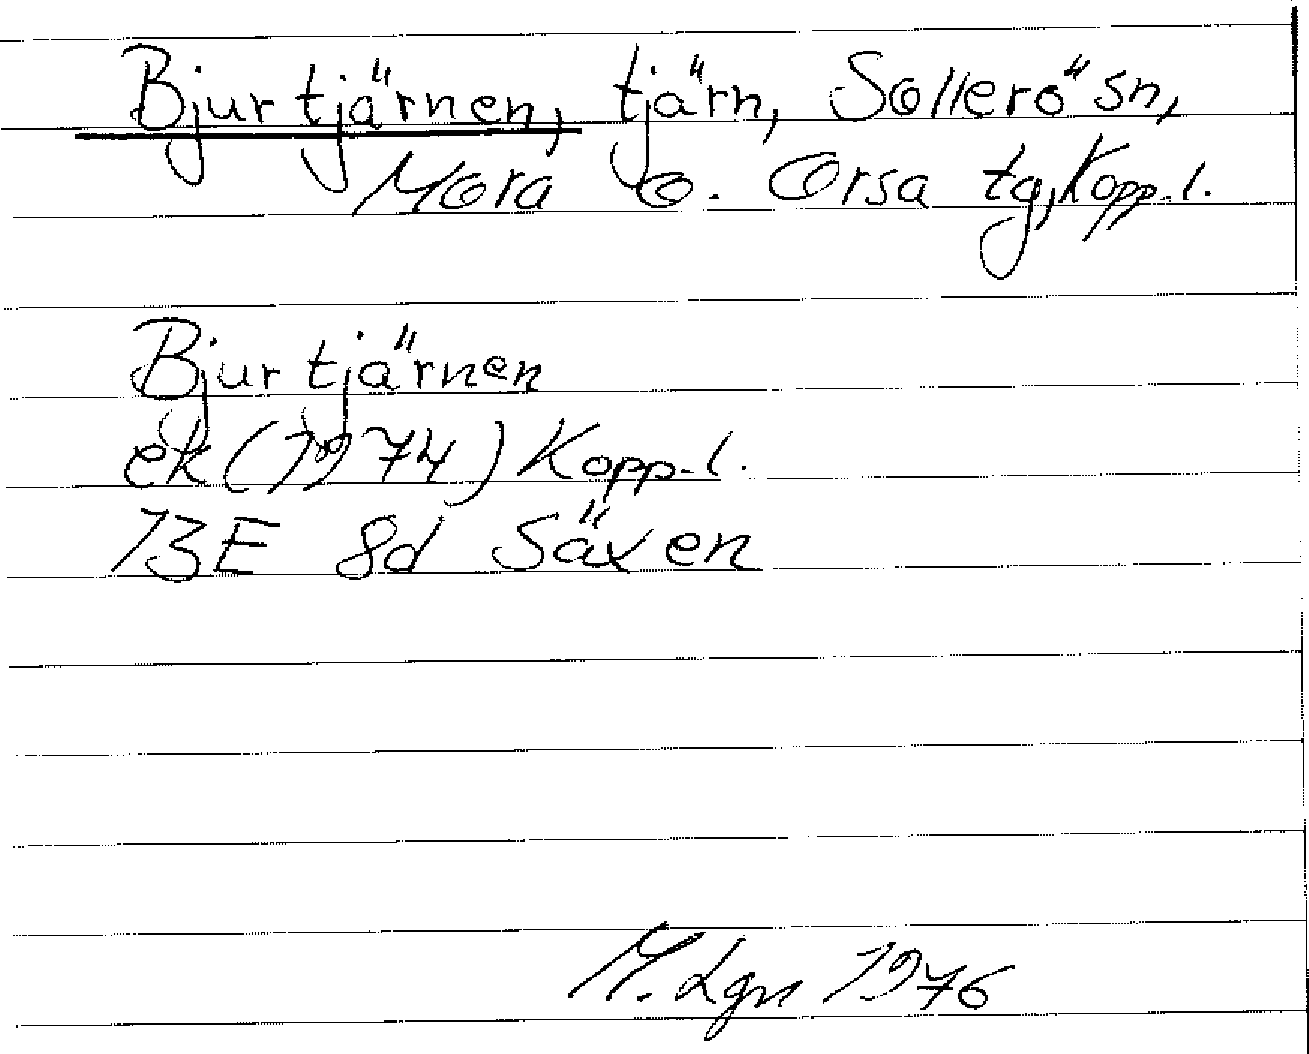 Bjurtjärnen, tjärn, Sollerö sn,
Mora o. Orsa tg, Kopp.l.
Bjurtjärnen
ek (1974) Kopp.l.
13E 8d Säxen
M. Lgn 1976